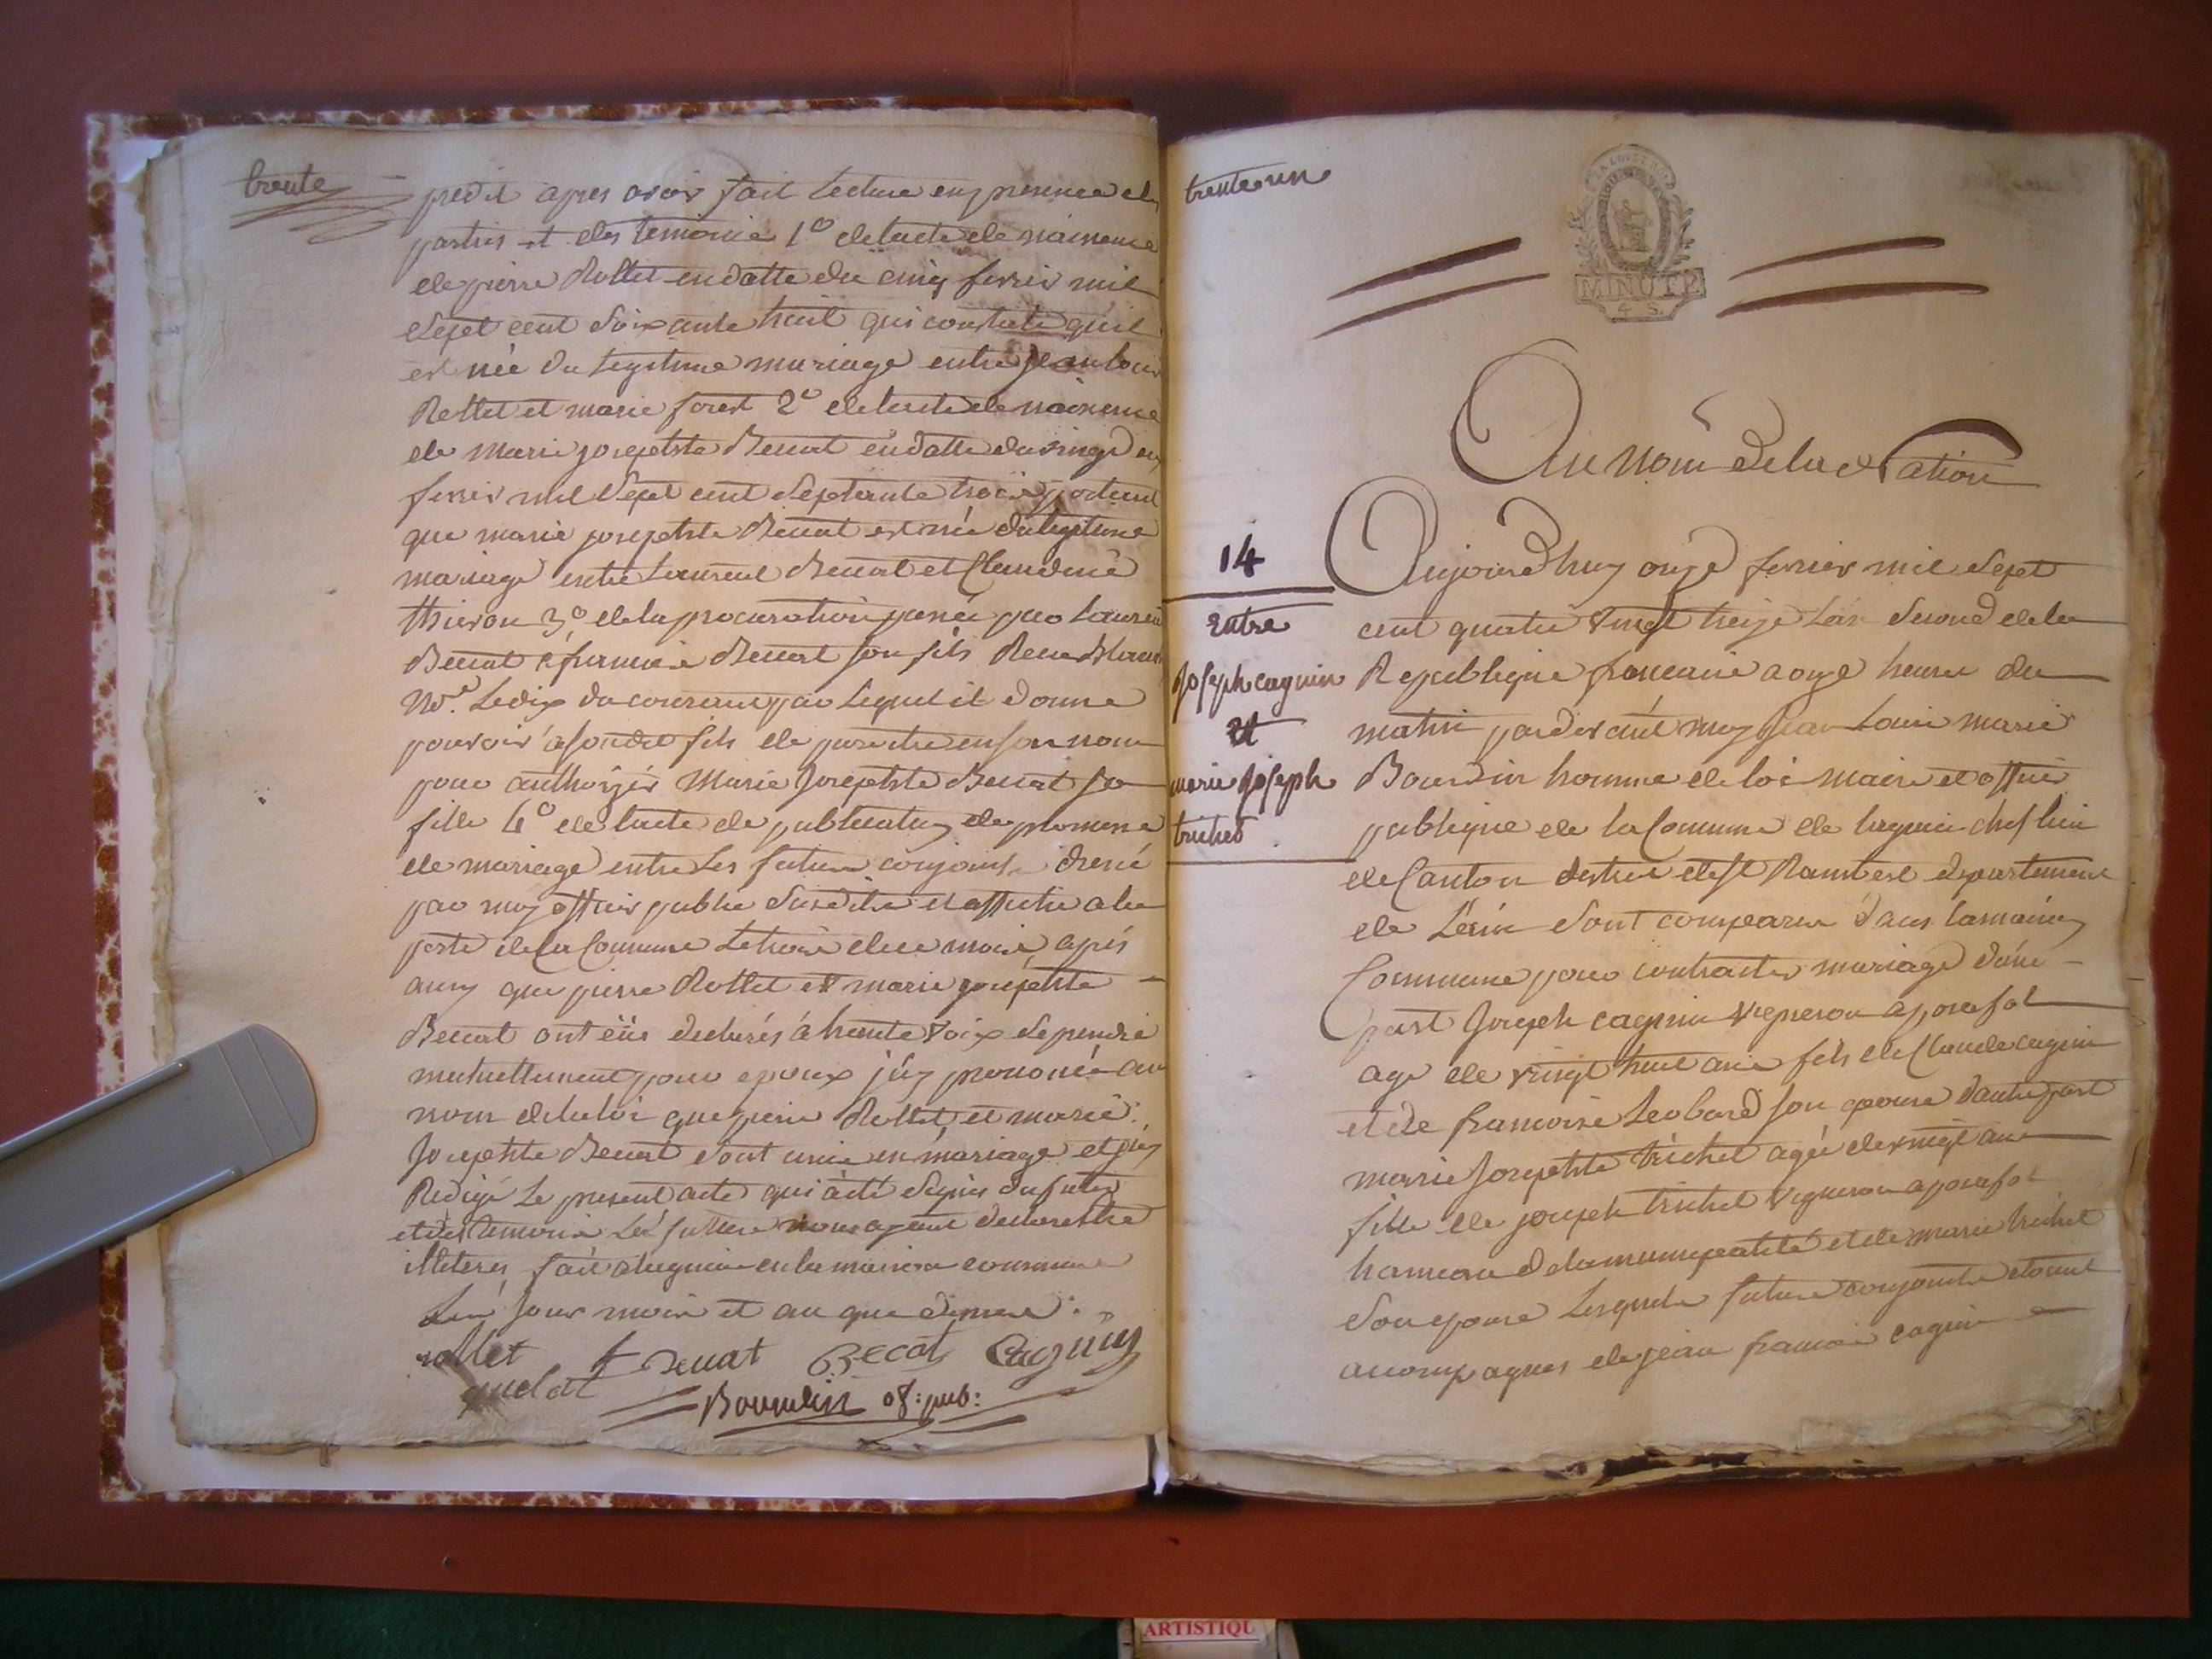 trente
predit apres avoir fait lecture en presence des
parties et des temoins 1º de lacte de naissance
de pierre Rollet en datte du cinq fevrier mil
sept cent soixante huit qui constate qu'il
est née du legitime mariage entre jean louis
Rollet et marie forest 2º de lacte de naissance
de marie josephte Becat en datte du vingt
fevrier mil sept cent septente trois portant
que marie josephte Becat est née du legitime
mariage entre Laurent Becat et Claudine
3º de la procuration passée par Laurent
Becat a Becat son fils Reçue
No.re Le dix du courant par lequel il donne
pouvoir a sondit fils de paroitre en son nom
pour authoriser Marie Josephte Becat sa
fille 4º de lacte de publication de promesse
de mariage entre les futurs conjoints dressé
par moy officier public susdit et affiché a la
porte de la Commune le trois de ce mois, apres
aussy que pierre Rollet et marie josephte
Becat ont eus declarés a haute voix se prendre
mutuellement pour epoux j'ay prononcé au
nom de la loi que pierre Rollet et marie
Josephte Becat sont unis en mariage et j'ay
Redigé le present acte qui a été signé du futur
et des temoins la future nous ayant declaré etre
illiterés, fait a lagnieu en la maison commune
Les jour mois et an que dessus
rollet f Becat Becat Cagnin
quelat
Bourdin of: pub:
trente un
LA LOI LE ROI
MINUTE
4 S.
Au Nom de la Nation
14
Entre
Joseph cagnin
Et
marie Joseph
trichet
Aujourd'huy onze fevrier mil sept
cent quatre vingt treize Lan second de la
Republique francaise a onze heures du
matin pardevant moy jean Louis marie
Bourdin homme de loi maire et officier
publique de la Commune de lagnieu chef lieu
de Canton district de St Rambert departement
de L'ain sont comparus dans la maison
Commune pour contracter mariage d'une
part Joseph cagnin vigneron a posafol
age de vingt huit ans fils de Claude cagnin
et de francoise Leobard son epouse dautre part
marie Josephte trichet agée de vingt ans
fille de joseph trichet vigneron a posafol
hameau de la municipalité et de marie trichet
son epouse Lesquels futurs conjoints etoient
acompagnes de jean francois cagnin
ARTISTIQU